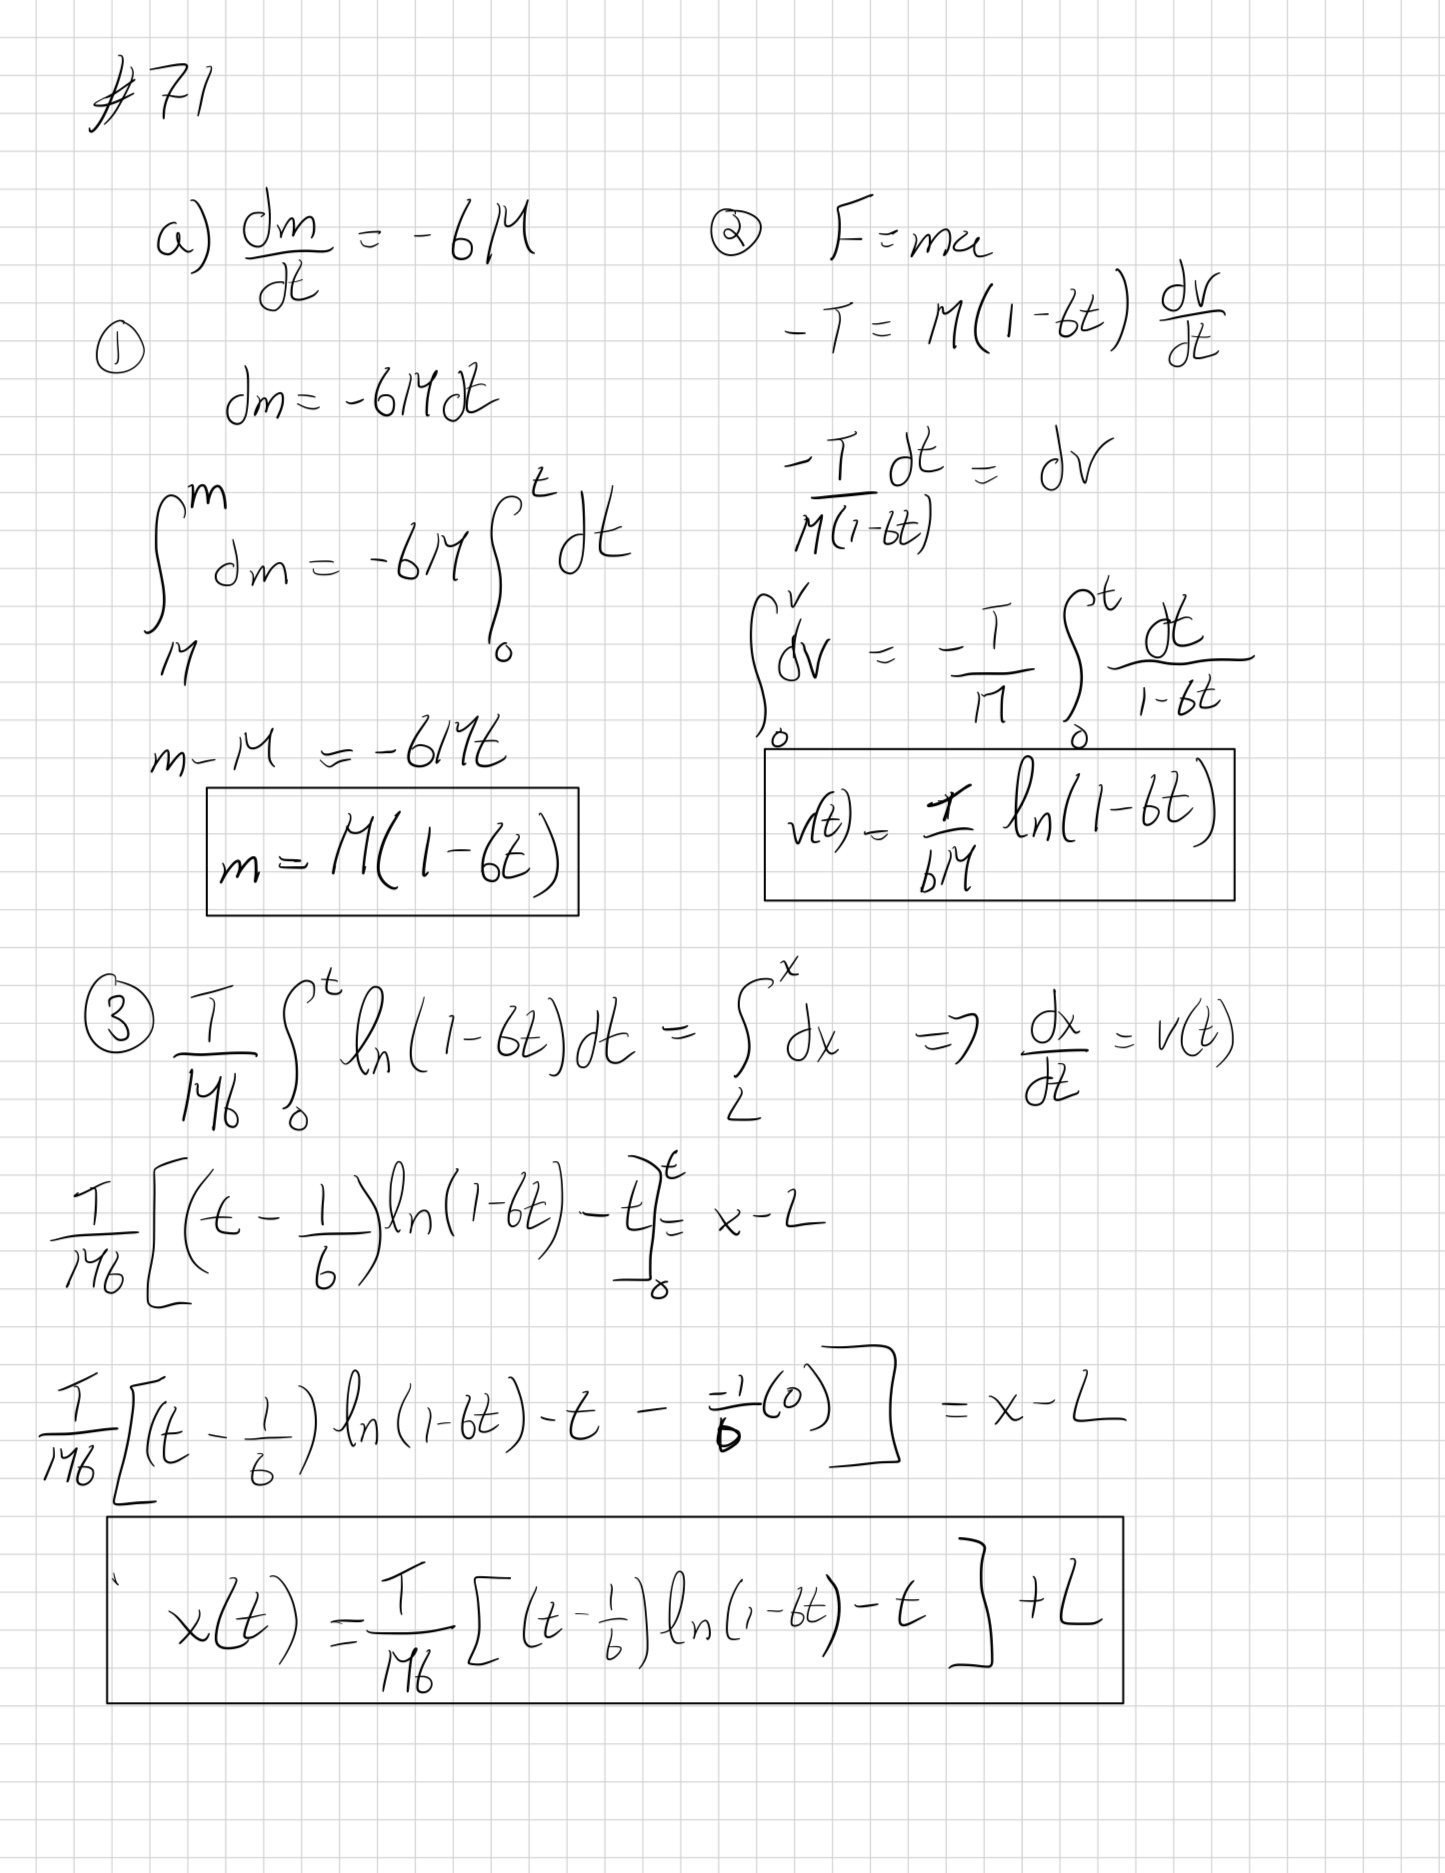 #71
a) dm/dt = -6M
①
dm = -6M dt
∫_M^m dm = -6M ∫_0^t dt
m - M = -6Mt
m = M(1-6t)
② F = ma
-T = M(1-6t) dv/dt
-T dt / M(1-6t) = dv
∫_0^v dv = -T/M ∫_0^t dt/(1-6t)
v(t) = T/6M ln(1-6t)
③ T/M6 ∫_0^t ln(1-6t)dt = ∫_L^x dx => dx/dt = v(t)
T/M6 [(t - 1/6)ln(1-6t) - t]_0^t = x - L
T/M6 [(t - 1/6) ln(1-6t) - t - -1/6(0)] = x - L
x(t) = T/M6 [(t - 1/6)ln(1-6t) - t] + L